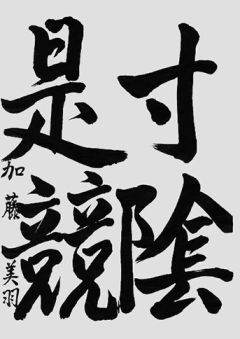 寸陰
是競
加藤美羽